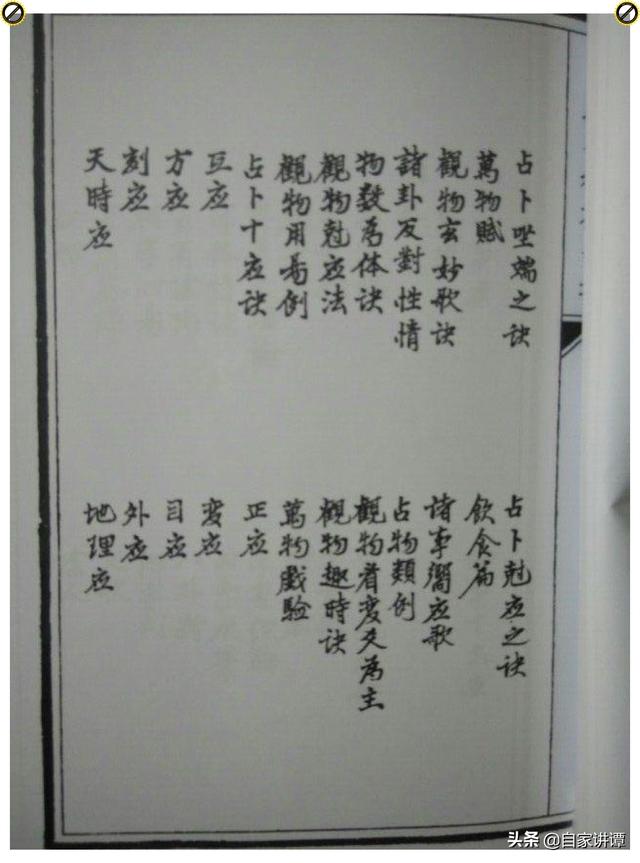 占卜坐端之诀
占卜尅应之诀
萬物賦
飲食篇
觀物玄妙歌诀
诸事響应歌
諸卦反對性情
占物類例
物数為体诀
觀物看变爻為主
觀物尅应法
觀物趣時诀
觀物用易例
萬物戲验
占卜十应诀
正应
互应
变应
方应
目应
刻应
外应
天時应
地理应
头条 @自家讲谭